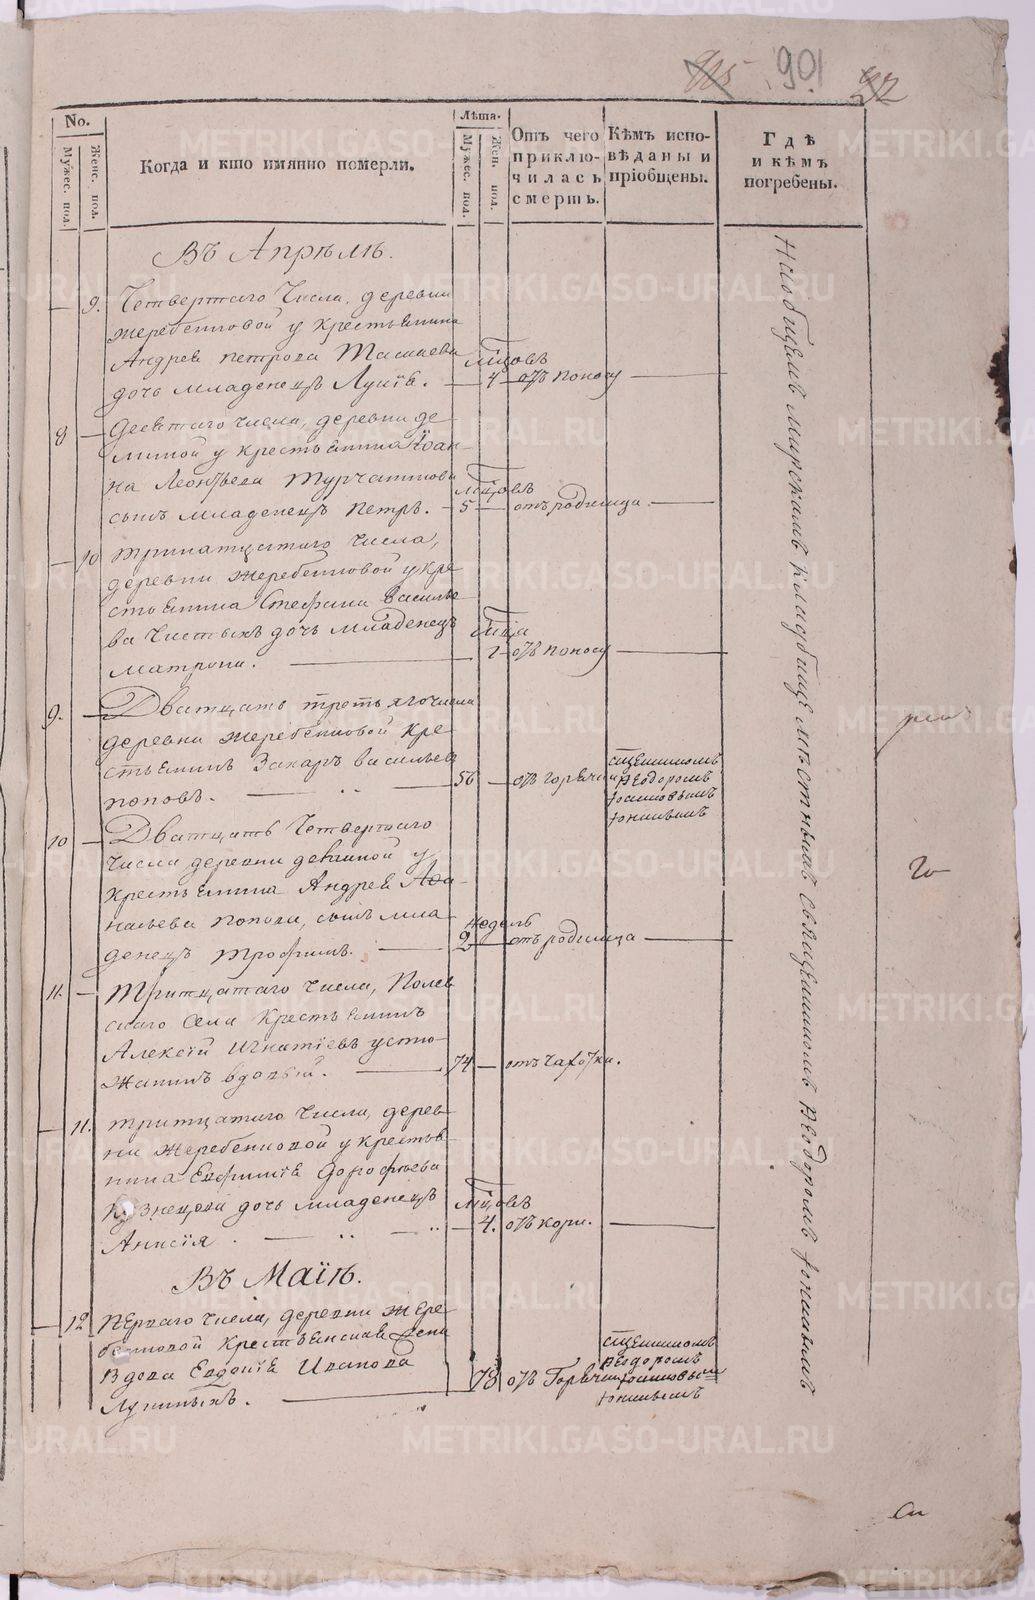 901
No.
Мужес. пол.
Женс. пол.
Когда и кто имянно померли.
Лѣта.
Мужес. пол.
Жен. пол.
Отъ чего
приклю-
чилась
смерть.
Кѣмъ испо-
вѣданы и
прiобщены.
Гдѣ
и кѣмъ
погребены.
Въ Апрѣлѣ.
9. Четвертаго Числа, деревни
Жеребенковой у крестьянина
Андрея петрова
дочь младенецъ Лукiя. 4 отъ поносу
мцовъ
8 Десятаго числа, деревни де-
миной у крестьянина Iоан-
на Леонтьева Турчанинова
сынъ младенецъ петръ. 5 отъ родимца.
мцовъ
10 тринатцатаго числа,
деревни жеребенковой у кре-
стьянина Стефана василье-
ва Чистыхъ дочь младенецъ
матрона. 2 отъ поносу
9. Дватцать третьяго числа
деревни жеребенковой кре-
стьянинъ Захаръ васильевъ
поповъ. 56 отъ горячки
сщенникомъ
Ѳеодоромъ
10 Дватцать Четвертаго
числа деревни деминой у
крестьянина Андрея Аѳа-
насьева попова, сынъ мла-
денецъ трофимъ. 2 отъ родимца
недель
11. Тритцатаго числа, Полев-
скаго села крестьянинъ
Алексiй игнатiевъ устю-
жанинъ вдовый. 74 отъ чахотки.
11. тритцатаго числа, дерев-
ни жеребенковой у крестья-
нина Евфимiя Дорофѣева
Кузнецова дочь младенецъ
Анисiя. 4. отъ кори.
мцовъ
Въ Маiѣ.
12 перваго числа, деревни жере-
бенковой крестьянская жена
вдова Евдокiя Иванова
Лупиныхъ. 78 отъ Горячки
сщенникомъ
Ѳеодоромъ
На общемъ мирскомъ кладбищѣ мѣстнымъ священникомъ Ѳеодоромъ
METRIKI.GASO-URAL.RU